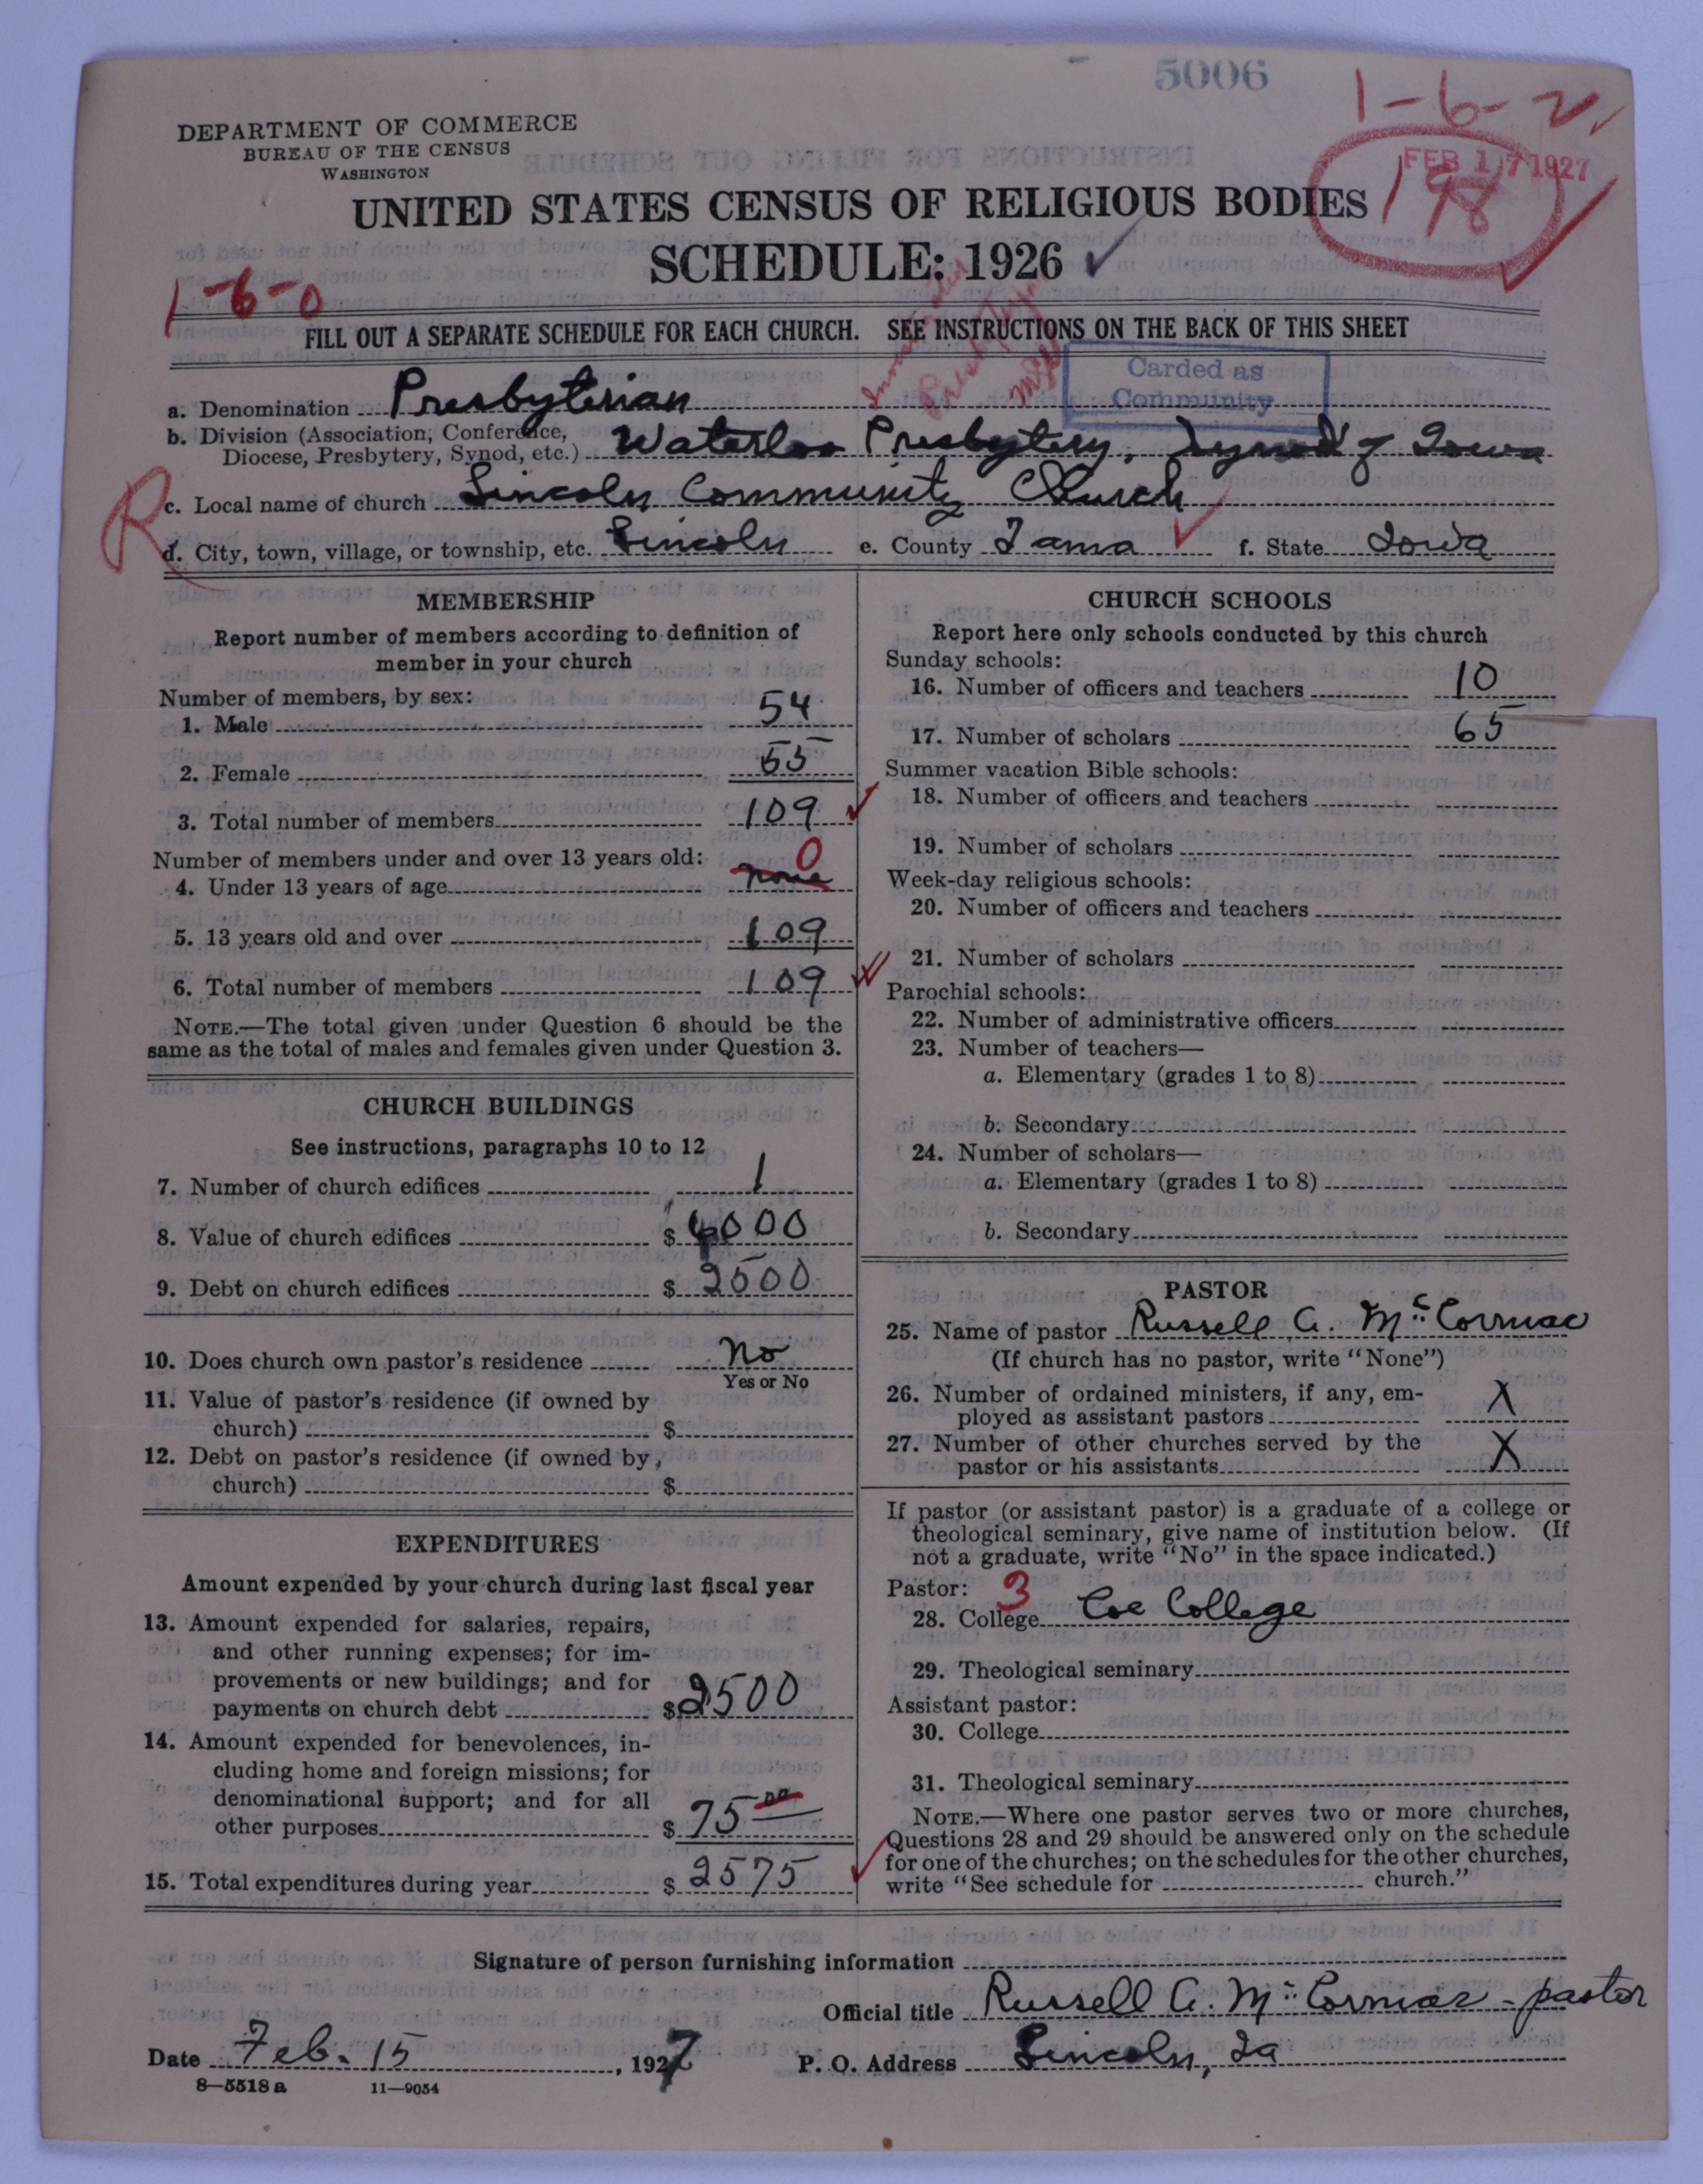 5006
1-6-2
DEPARTMENT OF COMMERCE
BUREAU OF THE CENSUS
WASHINGTON
FEB 17 1927
198
UNITED STATES CENSUS OF RELIGIOUS BODIES
SCHEDULE: 1926
1-6-0
FILL OUT A SEPARATE SCHEDULE FOR EACH CHURCH. SEE INSTRUCTIONS ON THE BACK OF THIS SHEET
Carded as
Community
a. Denomination Presbyterian
b. Division (Association, Conference,
Diocese, Presbytery, Synod, etc.) Waterloo Presbytery, Synod of Iowa
R
c. Local name of church Lincoln Community Church
d. City, town, village, or township, etc. Lincoln e. County Tama f. State Iowa
MEMBERSHIP
Report number of members according to definition of
member in your church
Number of members, by sex:
1. Male 54
2. Female 55
3. Total number of members 109
Number of members under and over 13 years old: 0
4. Under 13 years of age none
5. 13 years old and over 109
6. Total number of members 109
NOTE.—The total given under Question 6 should be the
same as the total of males and females given under Question 3.
CHURCH BUILDINGS
See instructions, paragraphs 10 to 12
7. Number of church edifices 1
8. Value of church edifices $ 6000
9. Debt on church edifices $ 2500
10. Does church own pastor's residence No
Yes or No
11. Value of pastor's residence (if owned by
church) $
12. Debt on pastor's residence (if owned by
church) $
EXPENDITURES
Amount expended by your church during last fiscal year
13. Amount expended for salaries, repairs,
and other running expenses; for im-
provements or new buildings; and for
payments on church debt $2500
14. Amount expended for benevolences, in-
cluding home and foreign missions; for
denominational support; and for all
other purposes $ 75 00
15. Total expenditures during year $ 2575
CHURCH SCHOOLS
Report here only schools conducted by this church
Sunday schools:
16. Number of officers and teachers 10
17. Number of scholars 65
Summer vacation Bible schools:
18. Number of officers and teachers
19. Number of scholars
Week-day religious schools:
20. Number of officers and teachers
21. Number of scholars
Parochial schools:
22. Number of administrative officers
23. Number of teachers—
a. Elementary (grades 1 to 8)
b. Secondary
24. Number of scholars—
a. Elementary (grades 1 to 8)
b. Secondary
PASTOR
25. Name of pastor Russell A. McCormac
(If church has no pastor, write "None")
26. Number of ordained ministers, if any, em-
ployed as assistant pastors X
27. Number of other churches served by the
pastor or his assistants X
If pastor (or assistant pastor) is a graduate of a college or
theological seminary, give name of institution below. (If
not a graduate, write "No" in the space indicated.)
Pastor: 3
28. College Coe College
29. Theological seminary
Assistant pastor:
30. College
31. Theological seminary
NOTE.—Where one pastor serves two or more churches,
Questions 28 and 29 should be answered only on the schedule
for one of the churches; on the schedules for the other churches,
write "See schedule for church."
Signature of person furnishing information
Official title Russell A. McCormac - pastor
Date Feb. 15, 1927 P. O. Address Lincoln, Ia
8—5518 a 11—9054